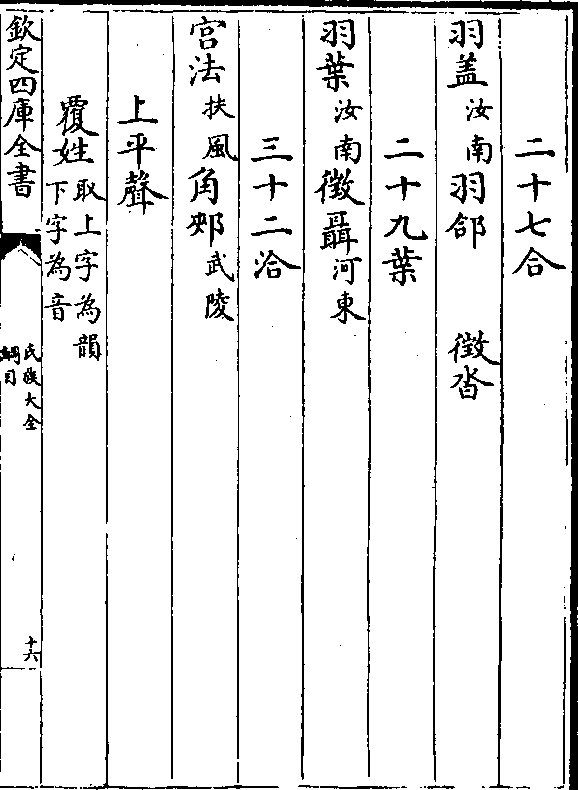 二十七合
羽盖汝南羽郃 徵沓
二十九葉
羽葉汝南徵聶河東
三十二洽
宫法扶風角郟武陵
上平聲
覆姓取上字為韻
下字為音
欽定四庫全書
氏族大全
綱目
十六